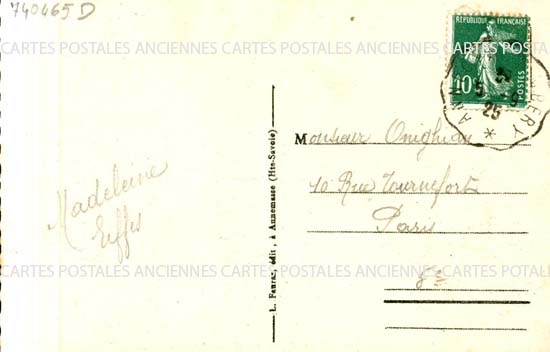 740465 D
RÉPUBLIQUE FRANÇAISE
10c
POSTES
25
CARTES POSTALES ANCIENNES CARTES POSTALES ANCIENNES CARTES POSTALES ANCIENNES
Madeleine
L. Fauraz, édit., à Annemasse (Hte-Savoie)
Monsieur
10 Rue Tournefort
Paris
CARTES POSTALES ANCIENNES CARTES POSTALES ANCIENNES CARTES POSTALES ANCIENNES